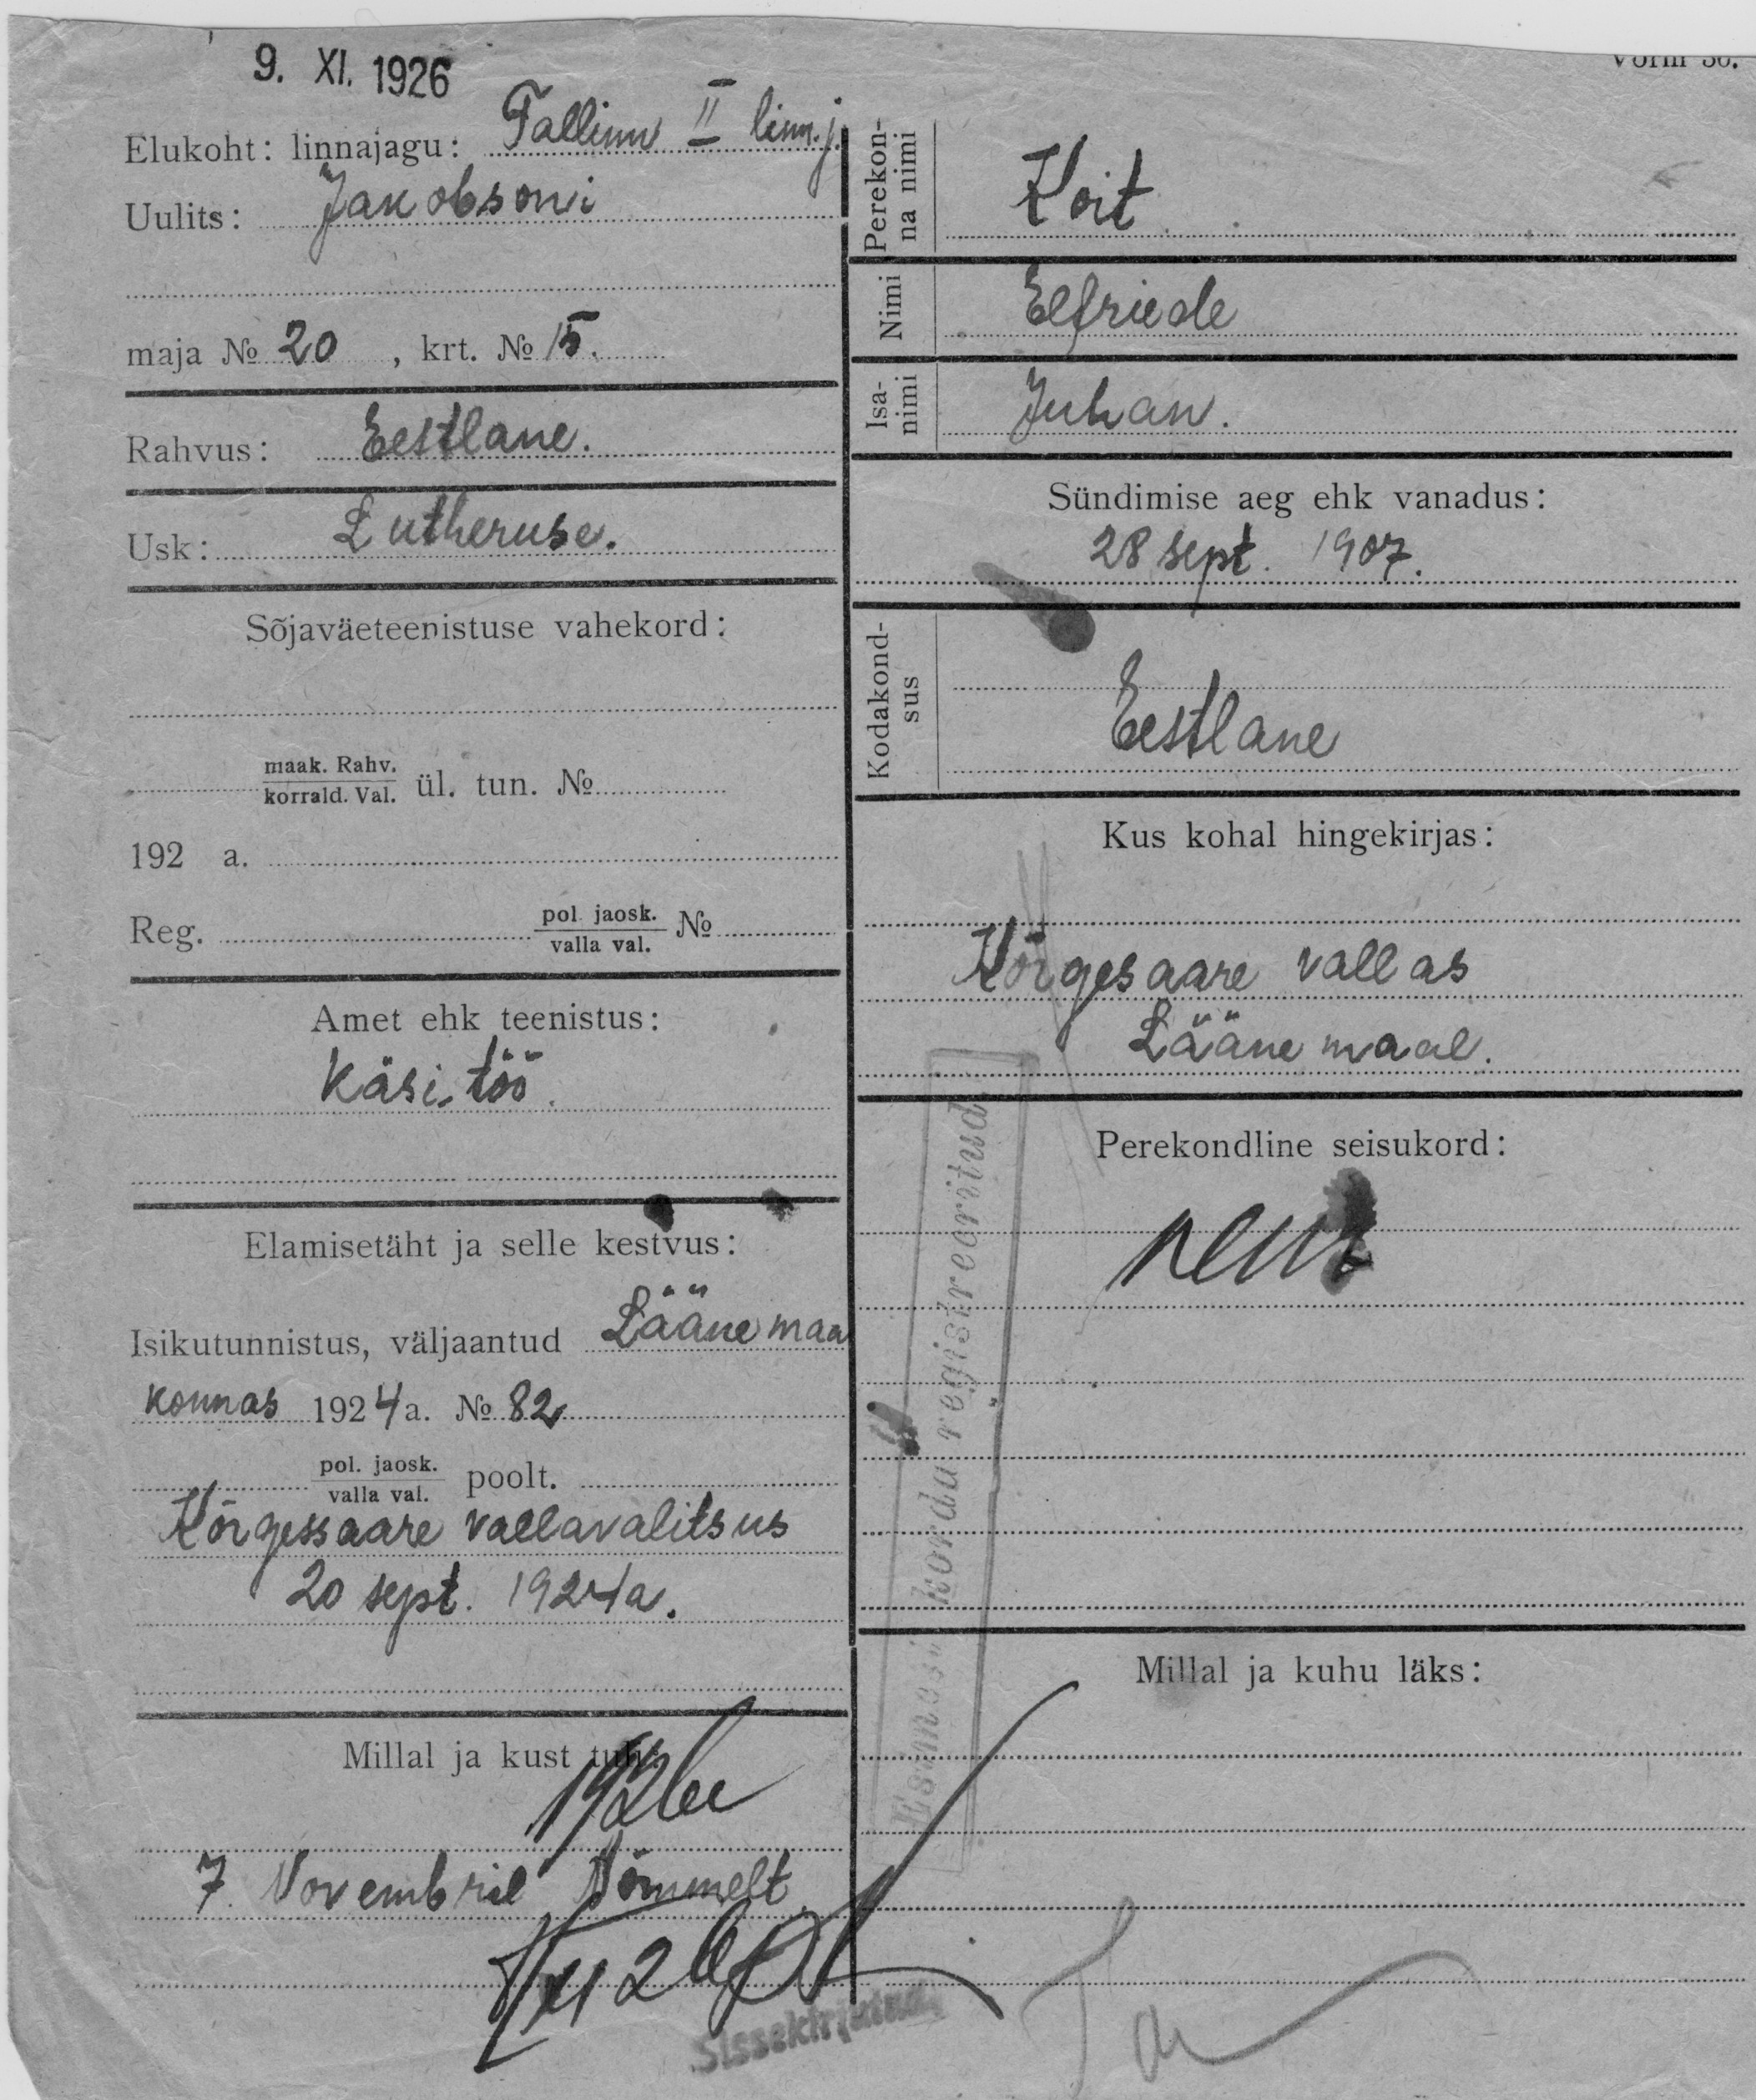 9. XI. 1926
Elukoht: linnajagu: Tallinn II linn.j.
Uulits: Jakobsoni
maja № 20, krt. № 15.
Rahvus: Eestlane.
Usk: Lutheruse.
Sõjaväeteenistuse vahekord:
maak. Rahv.
korrald. Val. ül. tun. №
192 a.
Reg. pol. jaosk. №
valla val.
Amet ehk teenistus:
Käsi-töö.
Elamisetäht ja selle kestvus:
Isikutunnistus, väljaantud Lääne maa
konnas 1924 a. № 82
pol. jaosk. poolt.
valla val.
Kõrgessaare vallavalitsus
20 sept. 1924 a.
Millal ja kust tuli:
1926
7. Novembril Nõmmelt
Sissekirjutud
Vorm 30.
Perekon-
na nimi Koit
Nimi Elfriede
Isa-
nimi Juhan.
Sündimise aeg ehk vanadus:
28 sept. 1907.
Kodakond-
sus Eestlane
Kus kohal hingekirjas:
Kõrgesaare vallas
Lääne maal.
Perekondline seisukord:
Esimesi korda registreeritud
Millal ja kuhu läks: